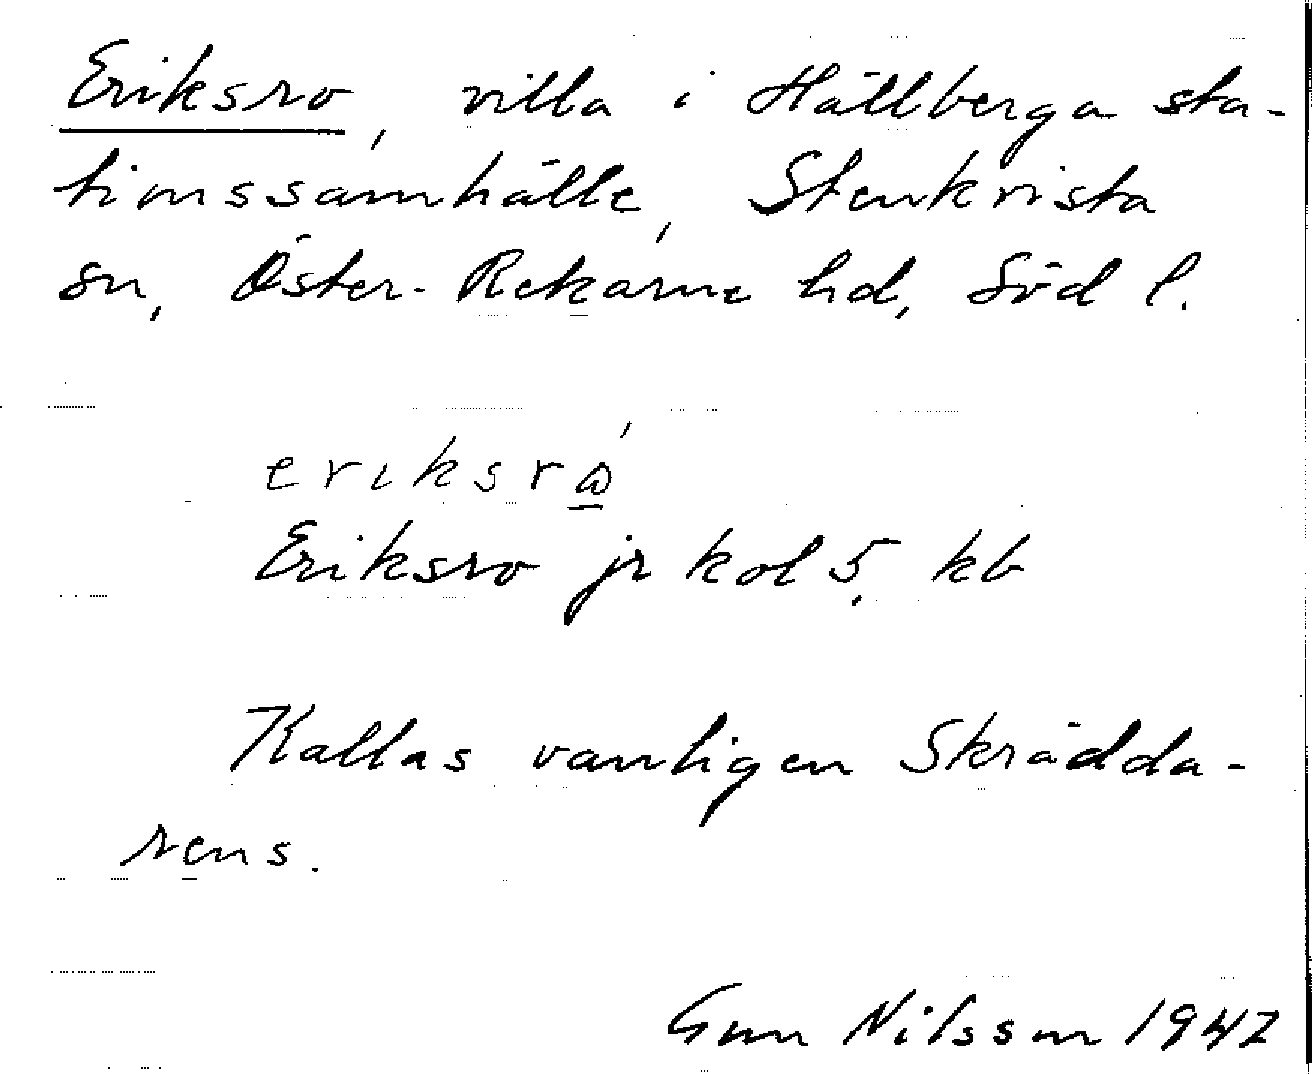 Eriksro, villa i Hällberga sta-
tionssamhälle, Stenkvista
sn, Öster-Rekarne hd, Söd l.
eriksrώ̲
Eriksro jr kol 5, kb
Kallas vanligen Skrädda-
rens.
Gun Nilsson 1947